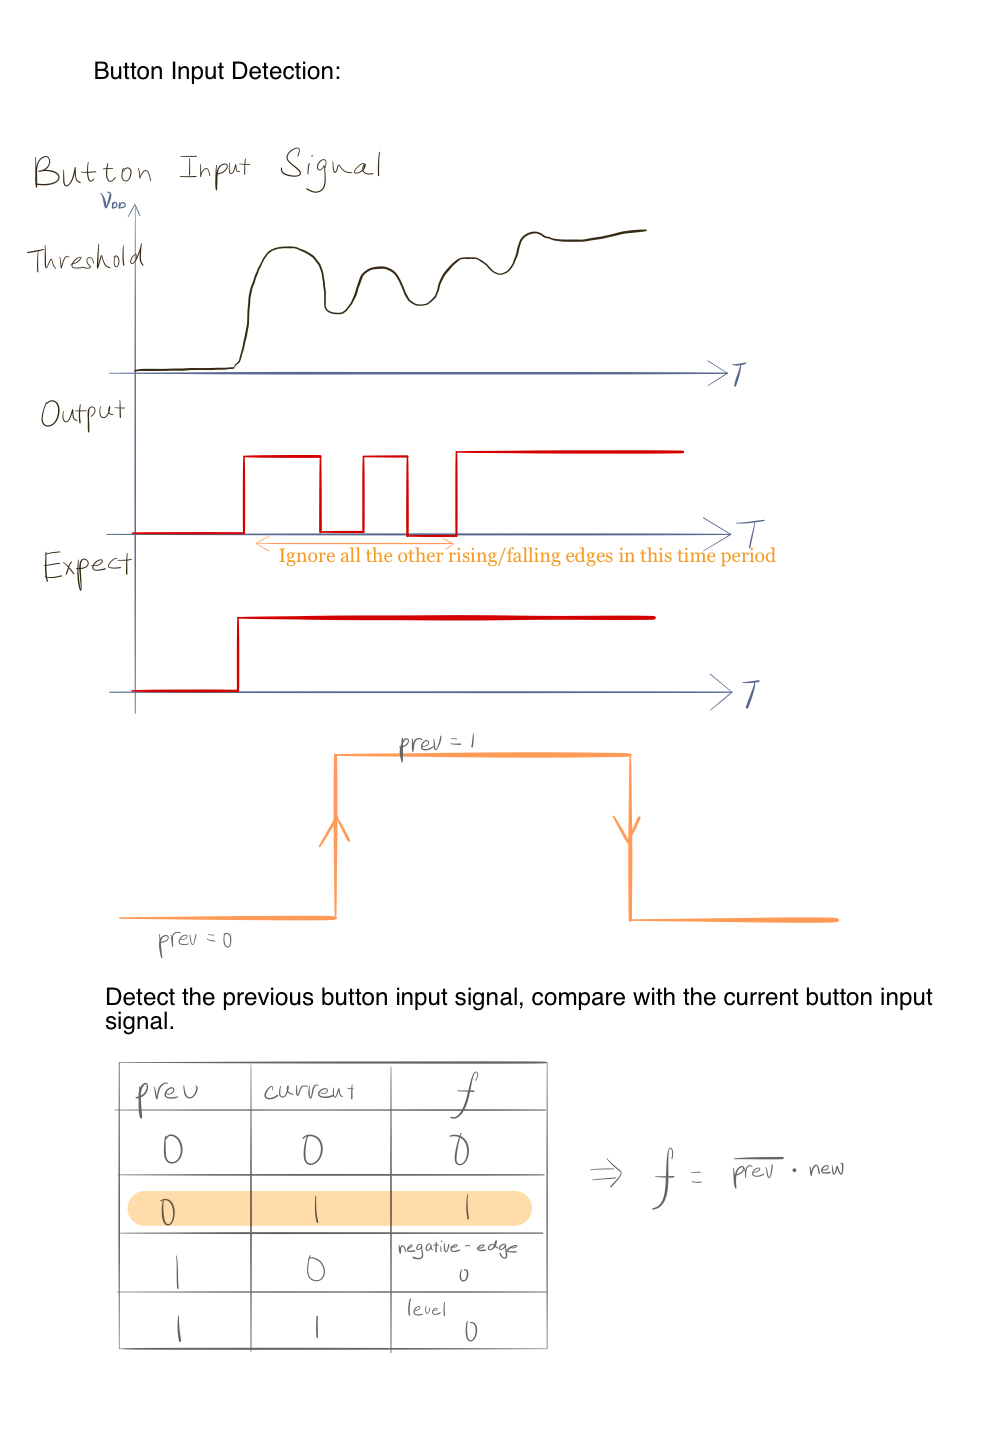 Button Input Detection:
Button Input Signal
VDD
Threshold
T
Output
T
Ignore all the other rising/falling edges in this time period
Expect
T
prev = 1
prev = 0
Detect the previous button input signal, compare with the current button input
signal.
prev current f
0 0 0
0 1 1
negative-edge
1 0 0
level
1 1 0
⇒ f = \overline{prev} · new